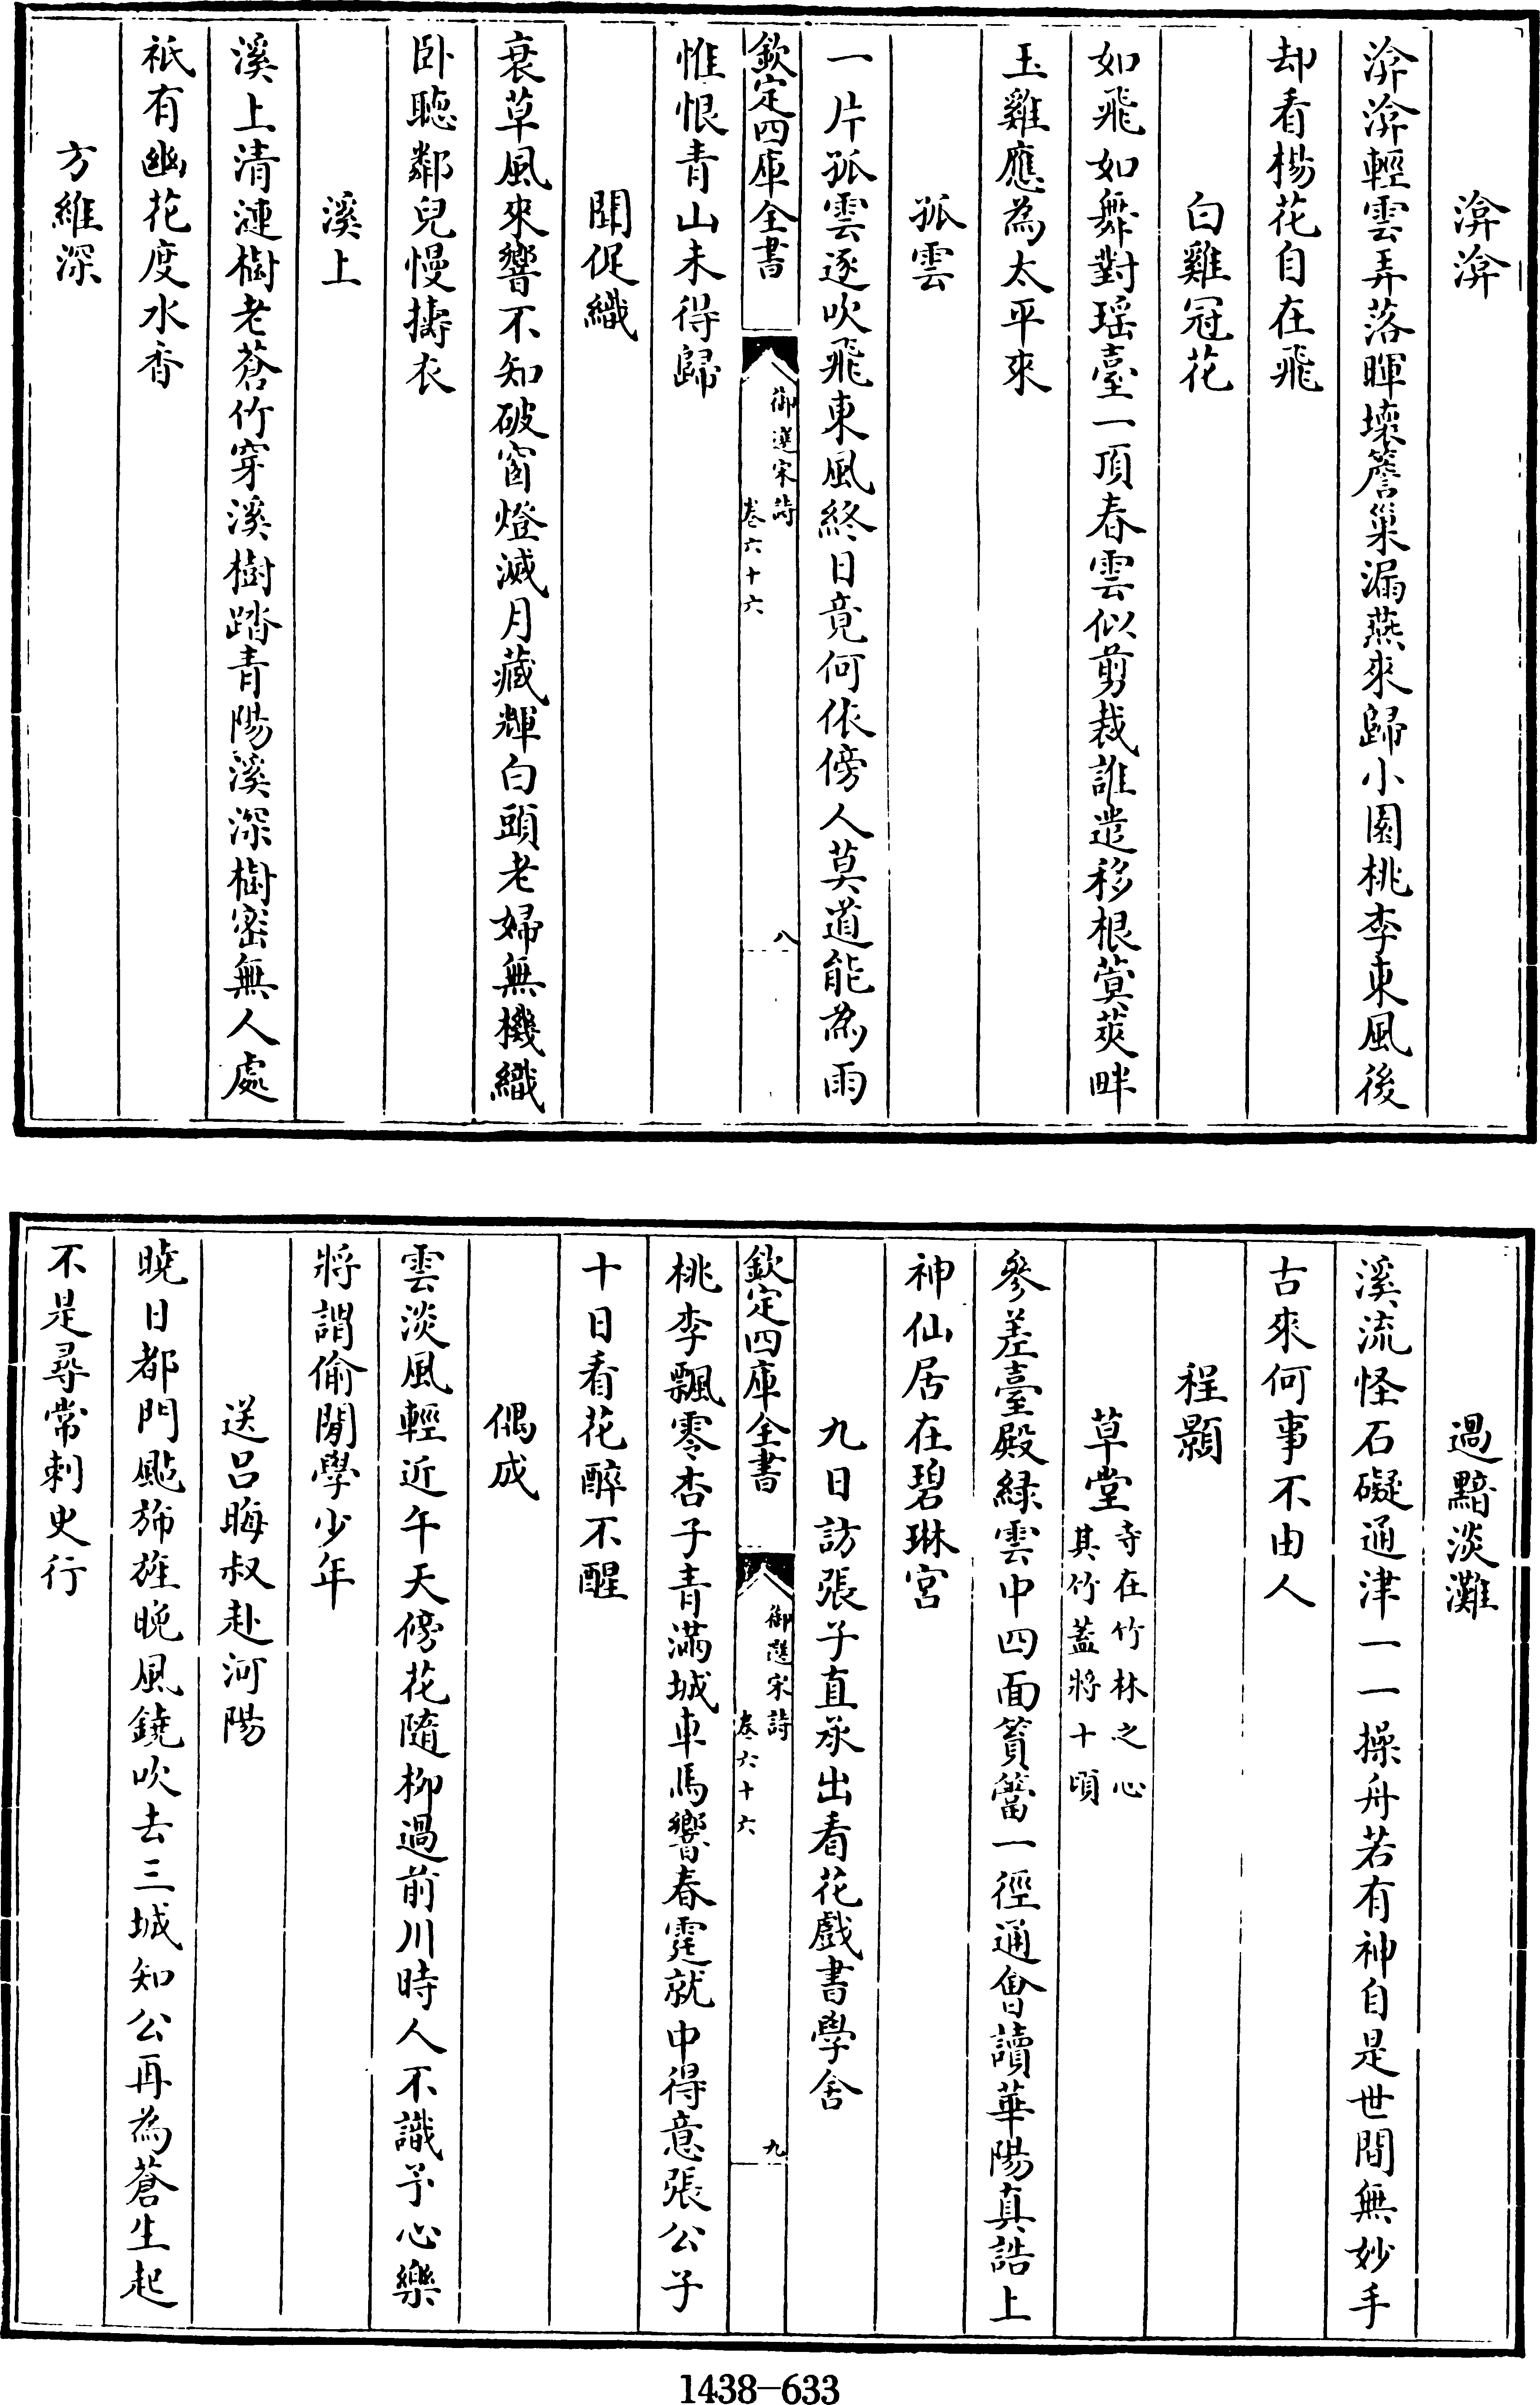 渰渰
渰渰輕雲弄落暉壞簷巢漏燕來歸小園桃李東風後
却看楊花自在飛
白雞冠花
如飛如舞對瑶臺一頂春雲似剪裁誰遣移根蓂莢畔
玉雞應為太平來
孤雲
一片孤雲逐吹飛東風終日竟何依傍人莫道能為雨
欽定四庫全書
御選宋詩
卷六十六
八
惟恨青山未得歸
聞促織
衰草風來響不知破窗燈滅月藏輝白頭老婦無機織
卧聽鄰兒慢擣衣
溪上
溪上清漣樹老蒼竹穿溪樹踏青陽溪深樹密無人處
秖有幽花度水香
方維深
過黯淡灘
溪流怪石礙通津一一操舟若有神自是世間無妙手
古來何事不由人
程顥
草堂
寺在竹林之心
其竹蓋將十頃
參差臺殿緑雲中四面篔簹一徑通曾讀華陽真誥上
神仙居在碧琳宮
九日訪張子直承出看花戲書學舍
欽定四庫全書
御選宋詩
卷六十六
九
桃李飄零杏子青滿城車馬響春霆就中得意張公子
十日看花醉不醒
偶成
雲淡風輕近午天傍花隨柳過前川時人不識予心樂
將謂偷閒學少年
送呂晦叔赴河陽
曉日都門颭旆旌晚風鐃吹去三城知公再為蒼生起
不是尋常刺史行
1438-633